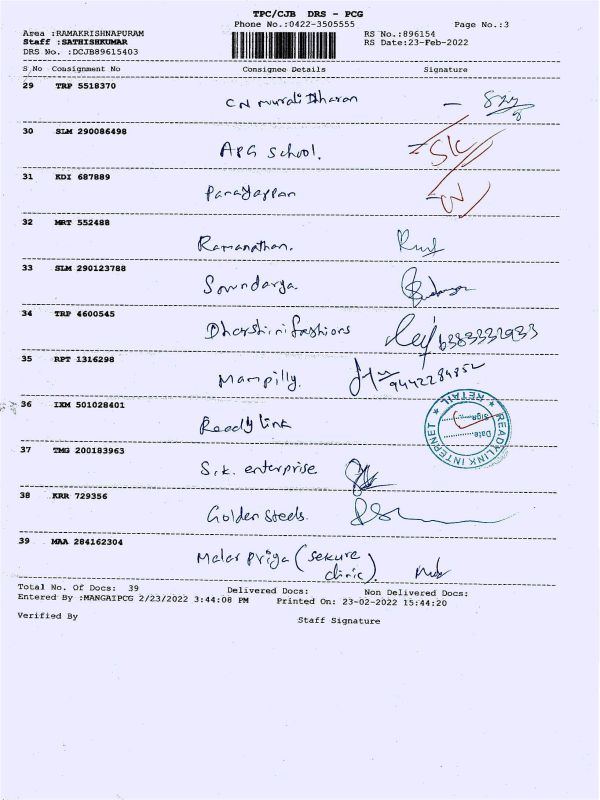 TPC/CJB DRS - PCG
Phone No.:0422-3505555 Page No.:3
Area :RAMAKRISHNAPURAM RS No.:896154
Staff :SATHISHKUMAR RS Date:23-Feb-2022
DRS No. :DCJB89615403
S No Consignment No Consignee Details Signature
29 TRP 5518370
CN Muralidharan
30 SLM 290086498
APG School.
31 KDI 687889
32 MRT 552488
Ramanathan.
33 SLM 290123788
Soundarya.
34 TRP 4600545
Dharshini fashions 6383332933
35 RPT 1316298
Mampilly. 9442284852
36 IXM 501028401
Readylink
READYLINK INTERNET * RETAIL *
Sign
Date
37 TMG 200183963
S.K. enterprise
38 KRR 729356
Golden Steels.
39 MAA 284162304
Malar Priya (Sekure
clinic).
Total No. Of Docs: 39 Delivered Docs: Non Delivered Docs:
Entered By :MANGAIPCG 2/23/2022 3:44:08 PM Printed On: 23-02-2022 15:44:20
Verified By
Staff Signature